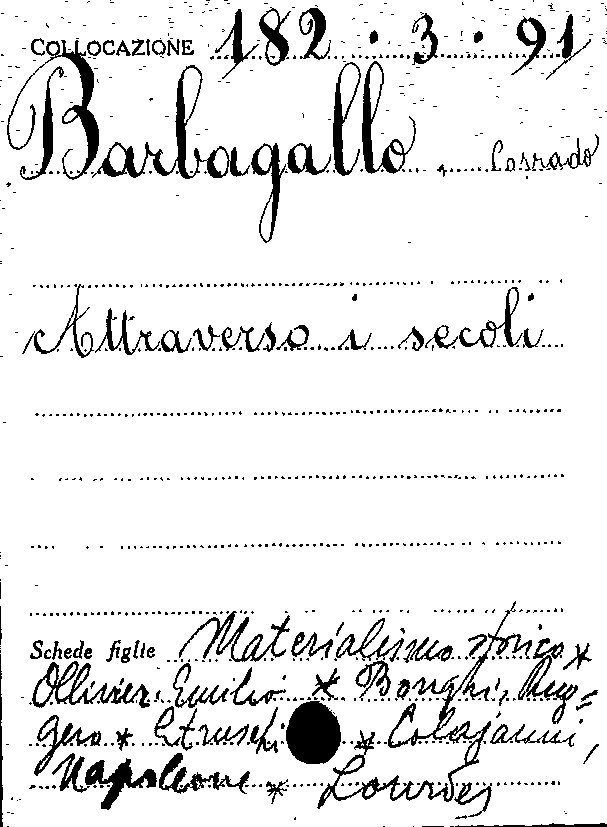 COLLOCAZIONE 182 . 3 . 91
Barbagallo, Corrado
Attraverso i secoli
Schede figlie Materialismo storico *
Ollivier, Emilio * Bonghi, Rug=
gero * Etruschi * Colajanni,
Napoleone * Lourdes